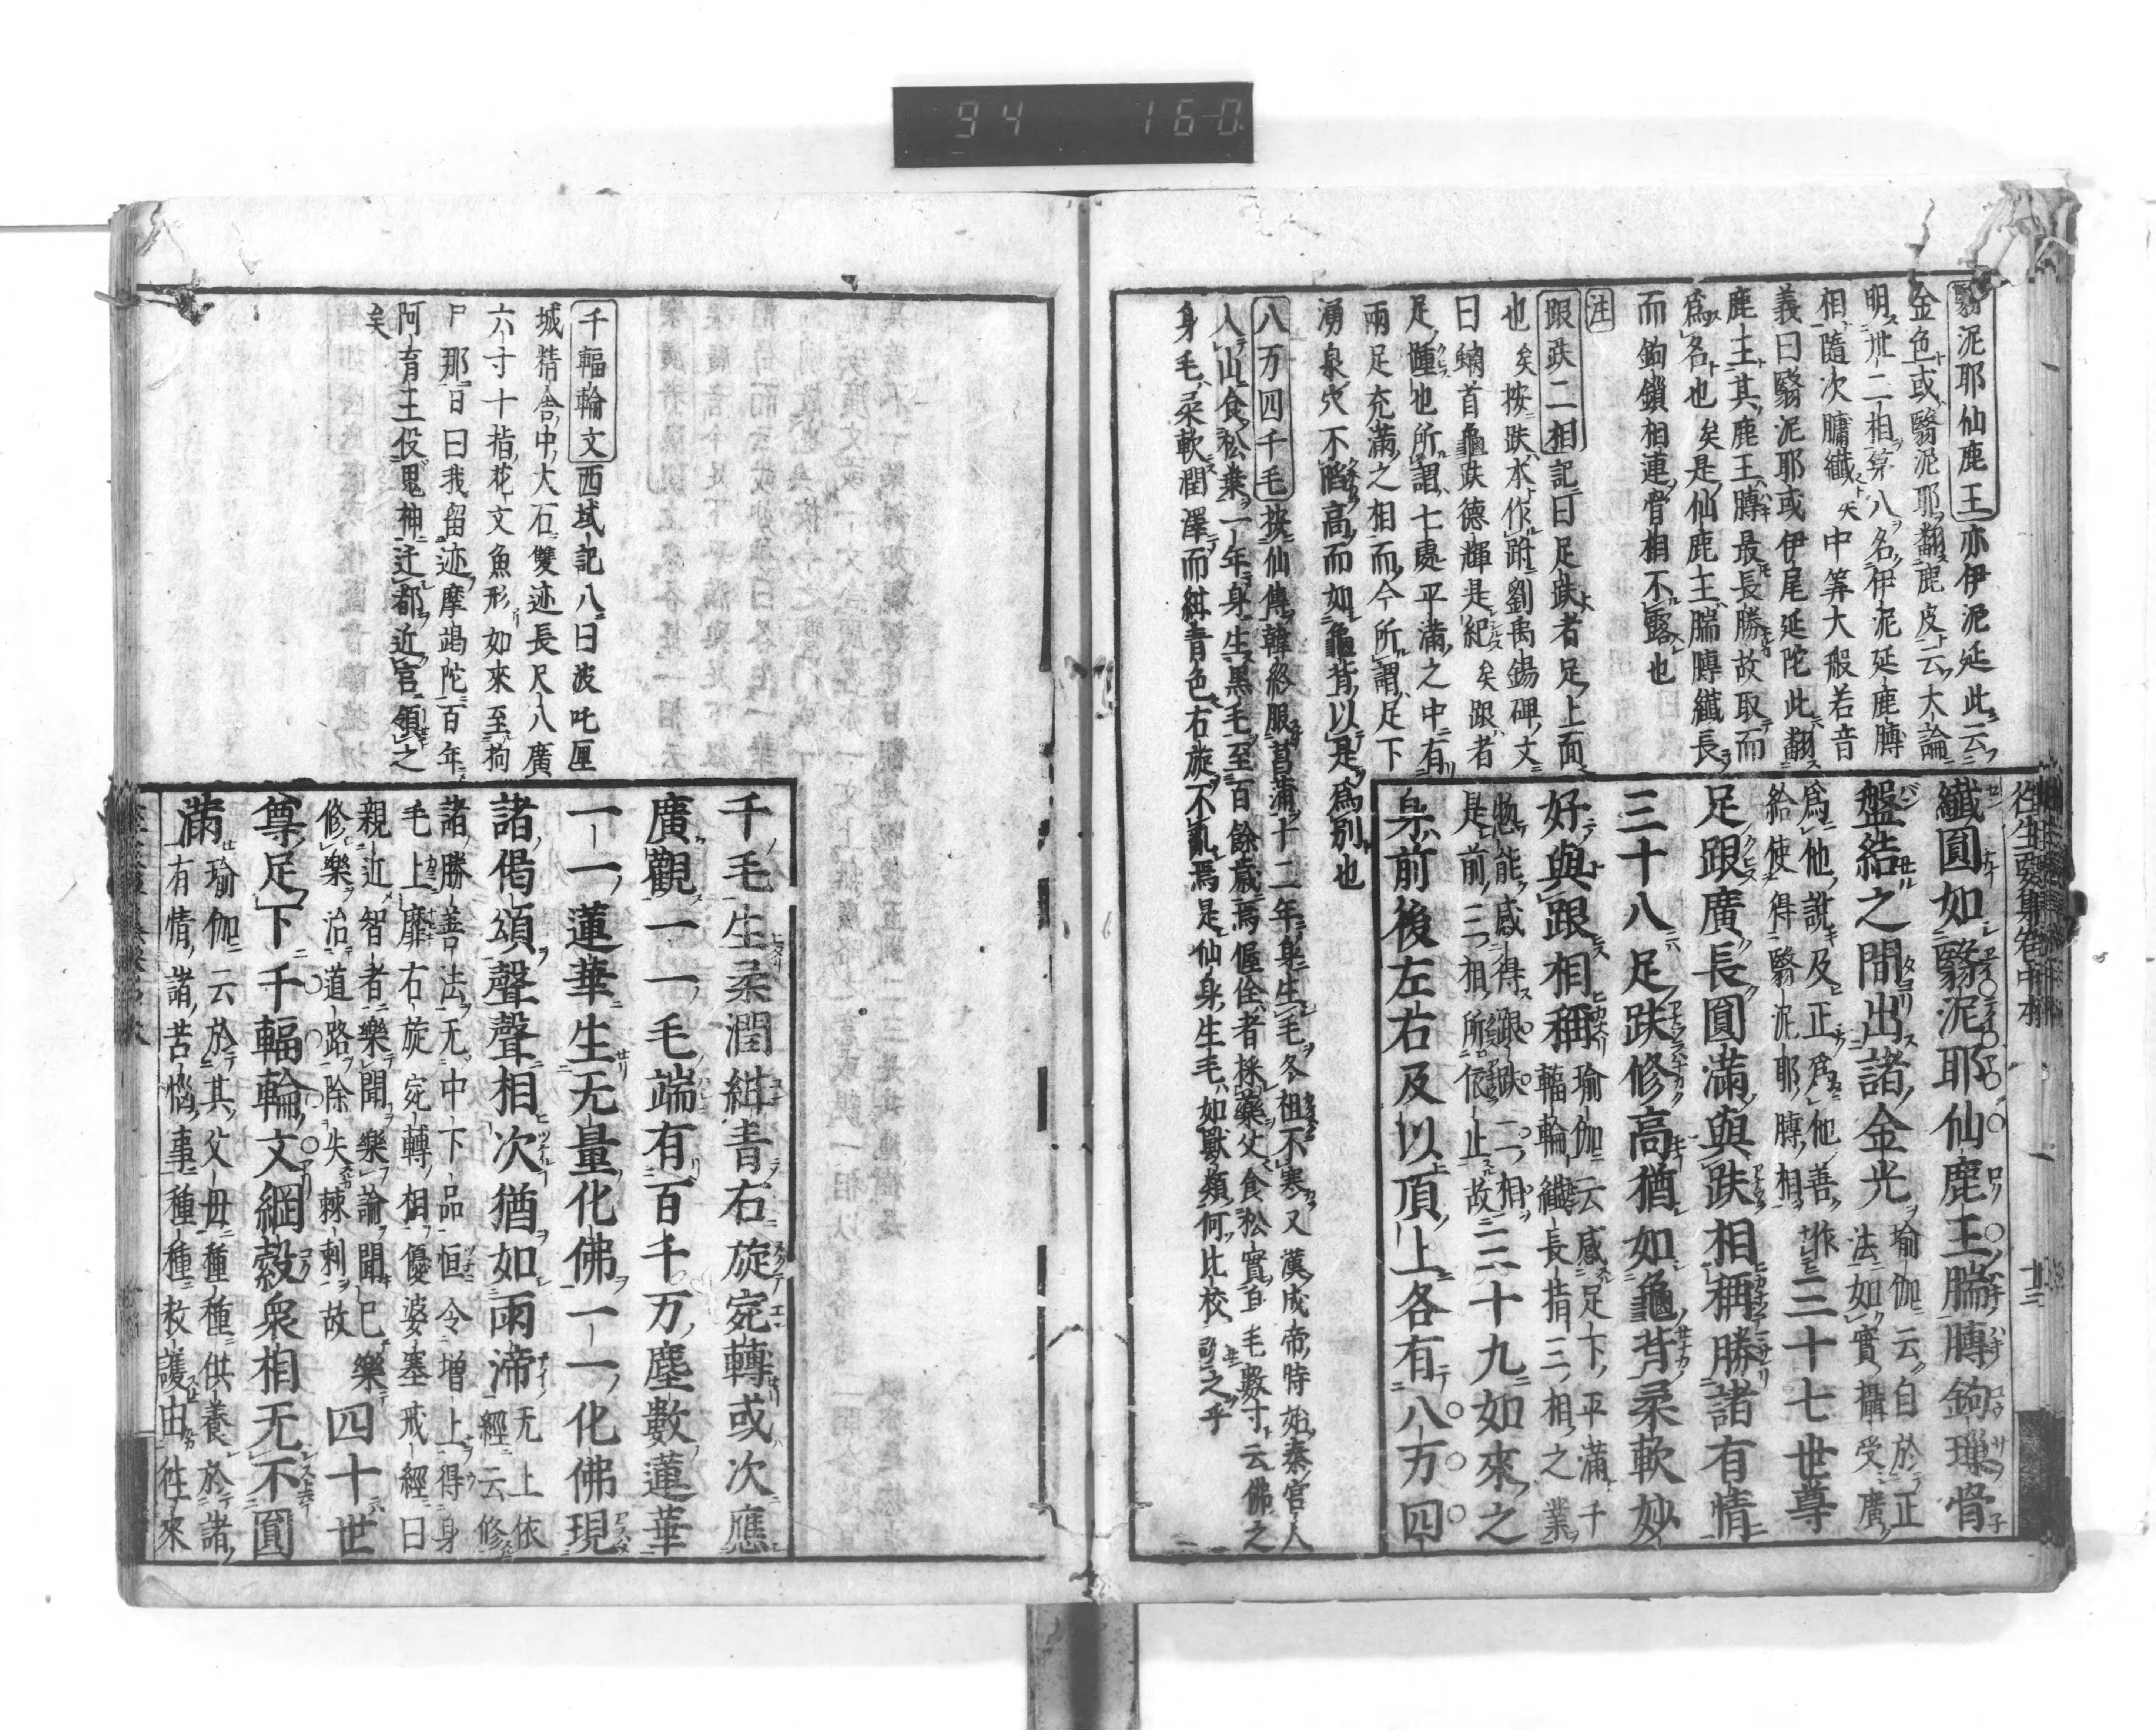 94 16-0.
往生要集卷中本 廿二
翳泥耶仙鹿王亦伊泥延此云
金色或翳泥耶翻鹿皮云大論
明卅二相第八名伊泥延鹿膊
相隨次𦟛纎矣中筭大般若音
義曰翳泥耶或伊尾延陀此翻
鹿王其鹿王膊最長勝故取而
爲名也矣是仙鹿王腨膊纎長
而鉤鎖相連骨相不露也
注
跟趺二相記曰足趺者足上面
也矣按趺本作跗劉禹錫碑文
曰螭首龜趺德輝是紀矣跟者
足踵也所謂七處平滿之中有
兩足充滿之相而今所謂足下
湧泉穴不陷高而如龜背以是爲別也
八万四千毛按仙傳韓終服菖蒲十二年身生毛冬袒不寒又漢成帝時始秦宮人
入山食松葉一年身生黑毛至百餘歲焉偓佺者採藥父食松實自毛數寸云佛之
身毛柔軟潤澤而紺青色右旋不亂焉是仙身生毛如獸類何比校之乎
纎圓如翳泥耶仙鹿王腨膊鉤璅骨
盤結之間出諸金光瑜伽云自於正
法如實攝受廣
爲他說及正爲他善作
給使得翳泥耶膊相三十七世尊
足跟廣長圓滿與趺相稱勝諸有情
三十八足趺修高猶如龜背柔軟妙
好與跟相稱瑜伽云感足下平滿千
輻輪纎長指三相之業
惣能感得跟趺二相
是前三相所依止故三十九如來之
身前後左右及以頂上各有八万四
千毛生柔潤紺青右旋宛轉或次應
廣觀一一毛端有百千万塵數蓮華
一一蓮華生无量化佛一一化佛現
諸偈頌聲聲相次猶如雨渧无上依
經云修
諸勝善法无中下品恒令增上得身
毛上靡右旋宛轉相優婆塞戒經曰
親近智者樂聞樂論聞已樂
修樂治道路除失棘刺故四十世
尊足下千輻輪文網縠衆相无不圓
滿瑜伽云於其父母種種供養於諸
有情諸苦惱事種種救護由往來
千輻輪文西域記八曰波吒厘
城精舍中大石雙迹長尺八廣
六寸十指花文魚形如來至拘
尸那曰我留迹摩竭陀百年
阿育王役鬼神迁都近宮領之
矣